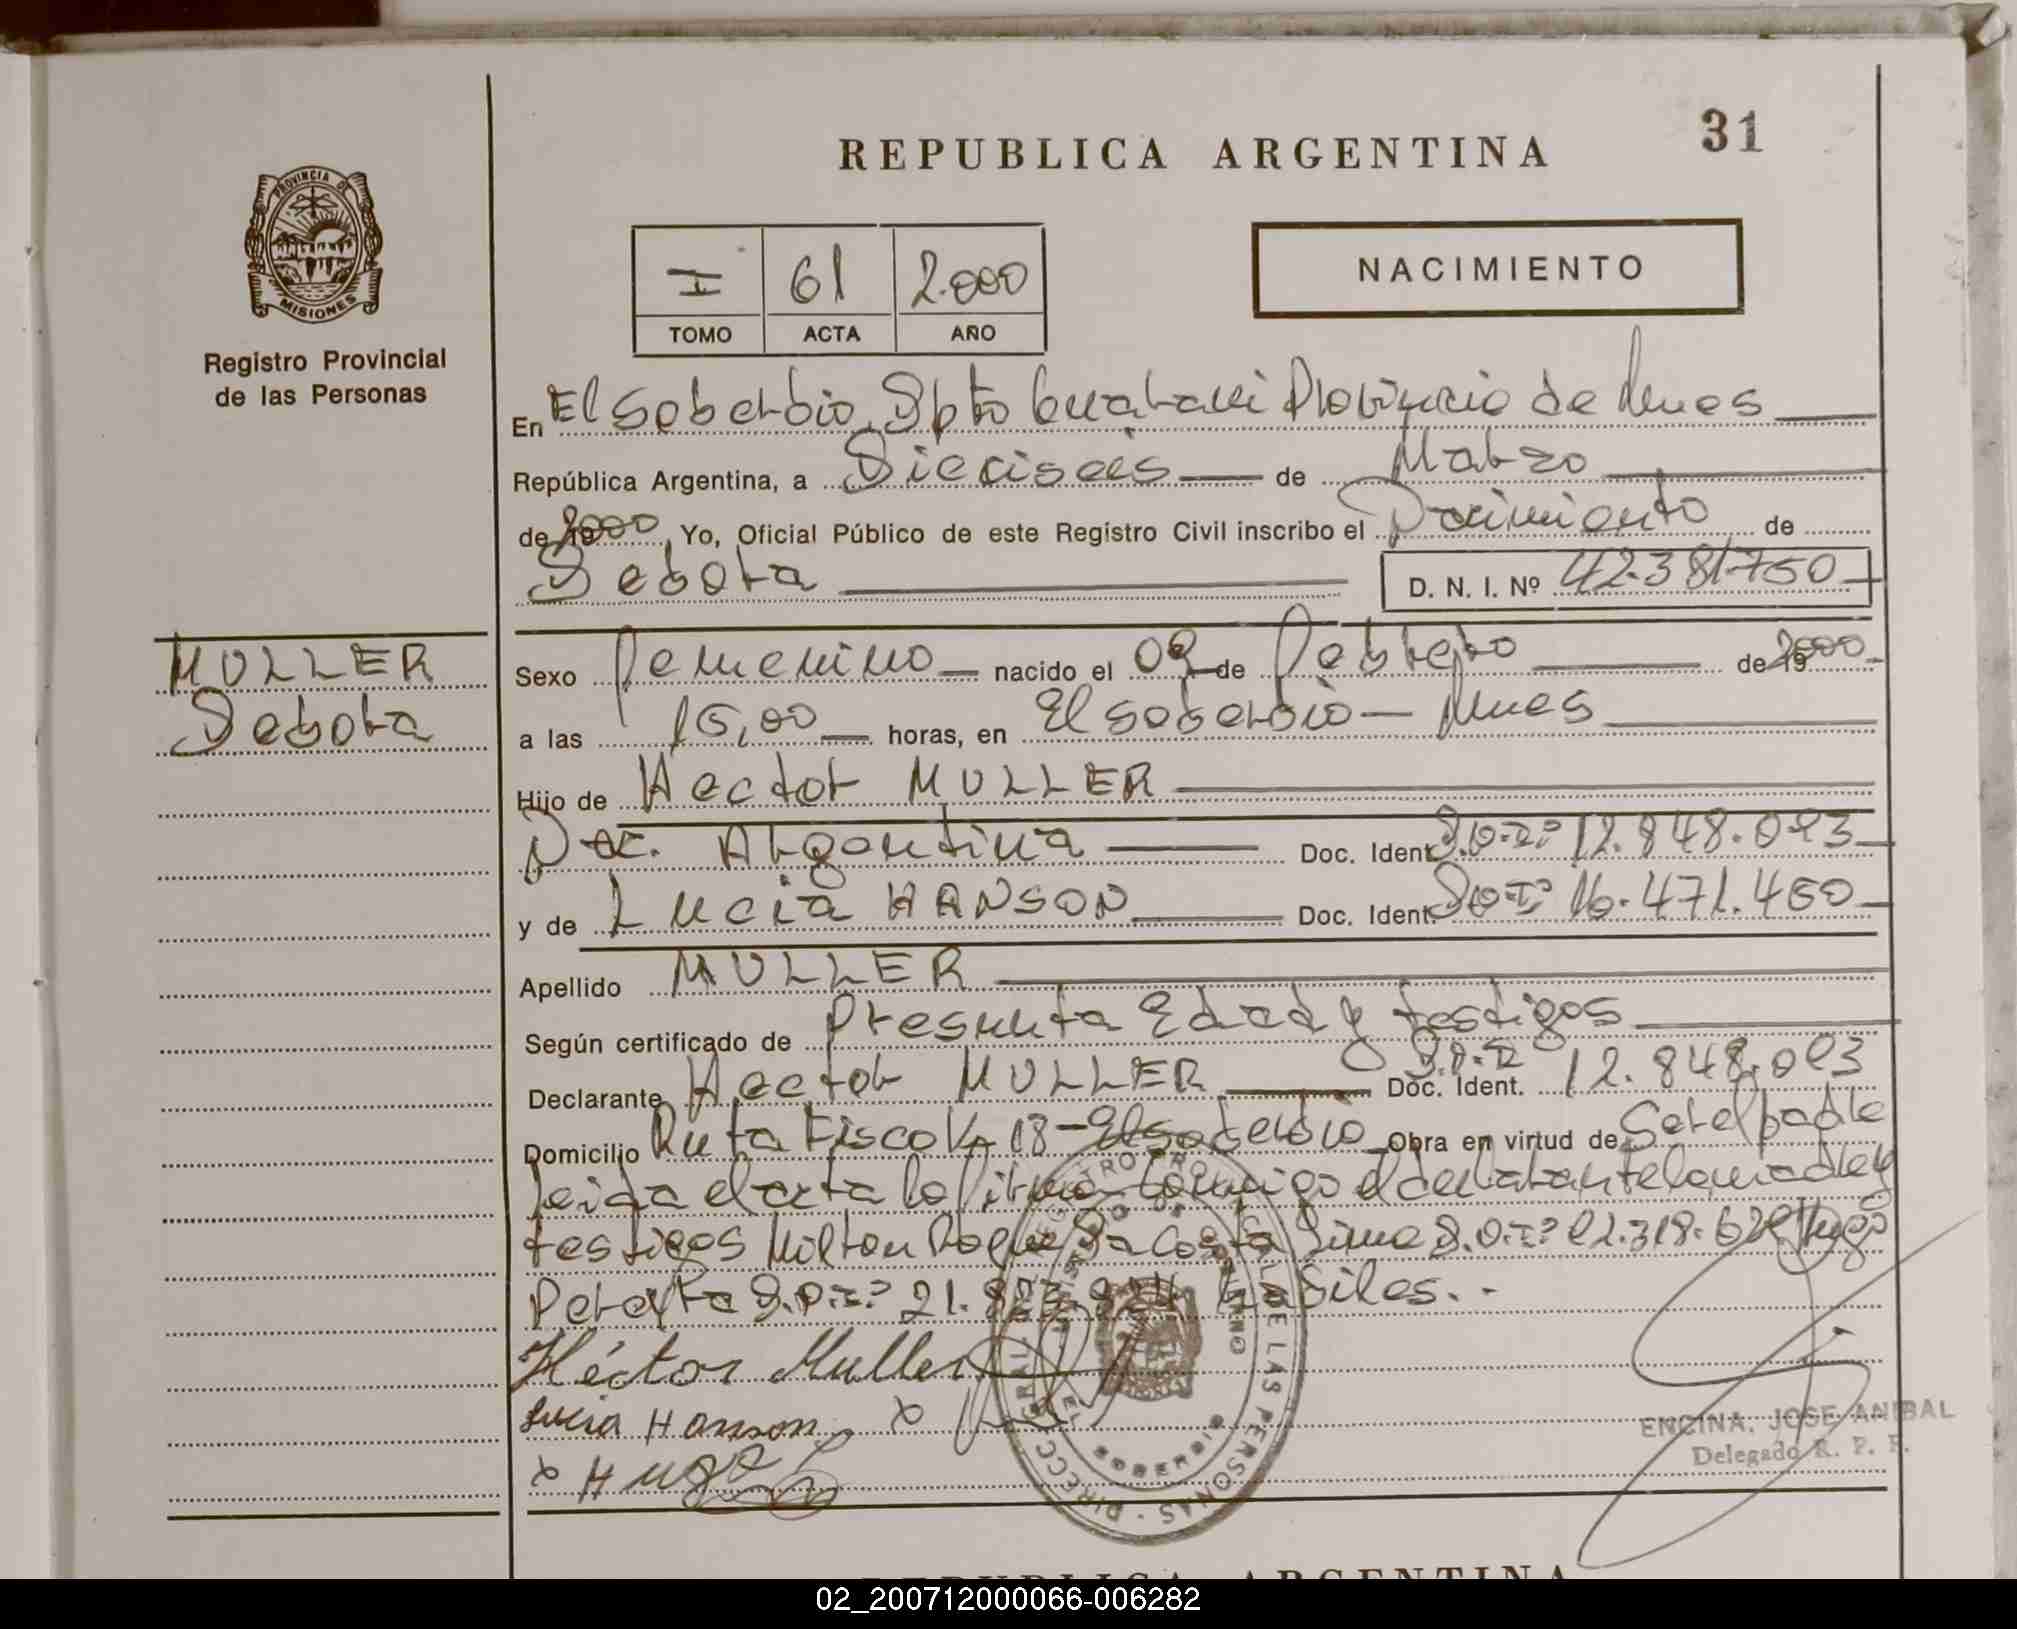 31
REPUBLICA ARGENTINA
PROVINCIA DE
MISIONES
Registro Provincial
de las Personas
I 61 2.000
TOMO ACTA AÑO
NACIMIENTO
En El Soberbio, Dpto Guarani Provincia de Mnes
República Argentina, a Dieciseis de Marzo
de 2000 Yo, Oficial Público de este Registro Civil inscribo el Nacimiento de
Debora
D. N. I. Nº 42.381.750
MULLER
Debora
Sexo Femenino nacido el 09 de Febrero de 2000
a las 15,00 horas, en El Soberbio - Mnes
Hijo de Hector MULLER
Nac. Argentina Doc. Ident. D.N.I: 12.848.093
y de Lucia HANSON Doc. Ident. DNI: 16.471.450
Apellido MULLER
Según certificado de Presunta Edad y testigos
Declarante Hector MULLER Doc. Ident. D.N.I 12.848.093
Domicilio Ruta Fiscol 13 - El Soberbio Obra en virtud de Ser el padre
Leida el acta la firma conmigo el declarante la madre y
testigos Milton Roque Da Costa Lima D.N.I: Hugo
Peralta D.N.I: 21. Habiles. -
Héctor Muller
Lucia Hanson x
x Hugo
DIRECC. GRAL. REGISTRO PROV. DE LAS PERSONAS
EL SOBERBIO
ENCINA, JOSE ANIBAL
Delegado R. P. P.
REPUBLICA ARGENTINA
02_200712000066-006282